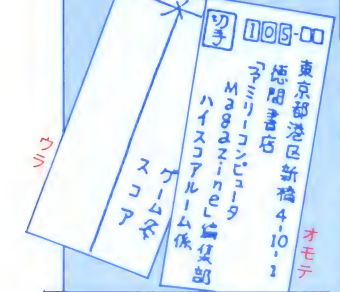 切手
105-□□
東京都港区新橋4-10-1
徳間書店
「ファミリーコンピュータ
Magazine」編集部
ハイスコアルーム係
オモテ
ゲーム名
スコア
ウラ